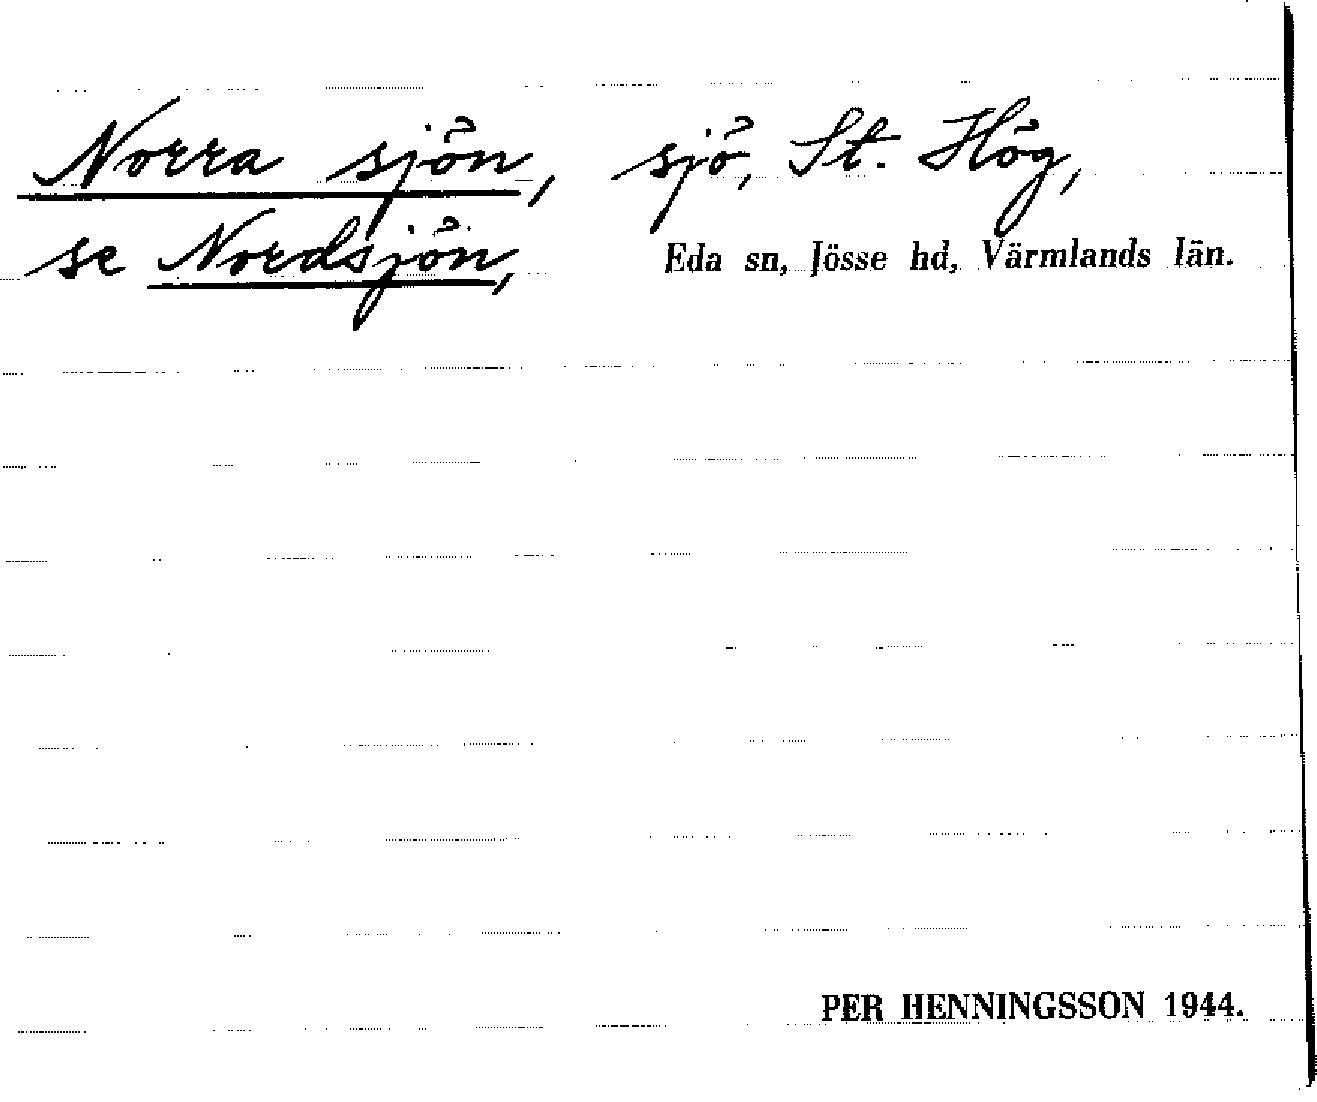 Norra sjön, sjö, St. Hög,
se Nordsjön, Eda sn, Jösse hd, Värmlands län.
PER HENNINGSSON 1944.